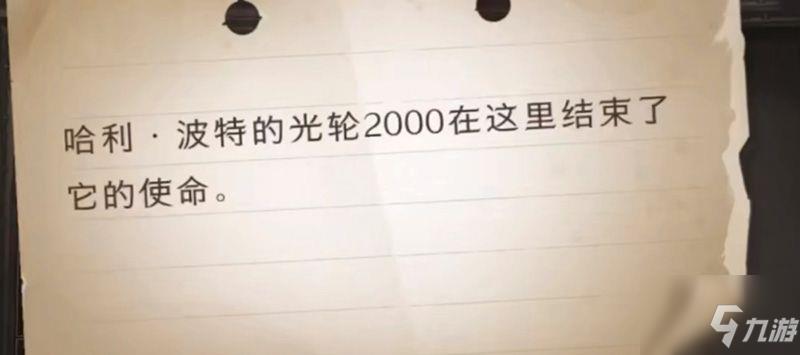 哈利·波特的光轮2000在这里结束了
它的使命。
九游